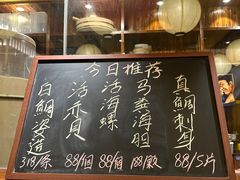 今日推荐
真鯛刺身
88/5片
马粪海胆
188/顆
活海螺
88/個
活赤貝
88/個
白鯛姿造
318/条